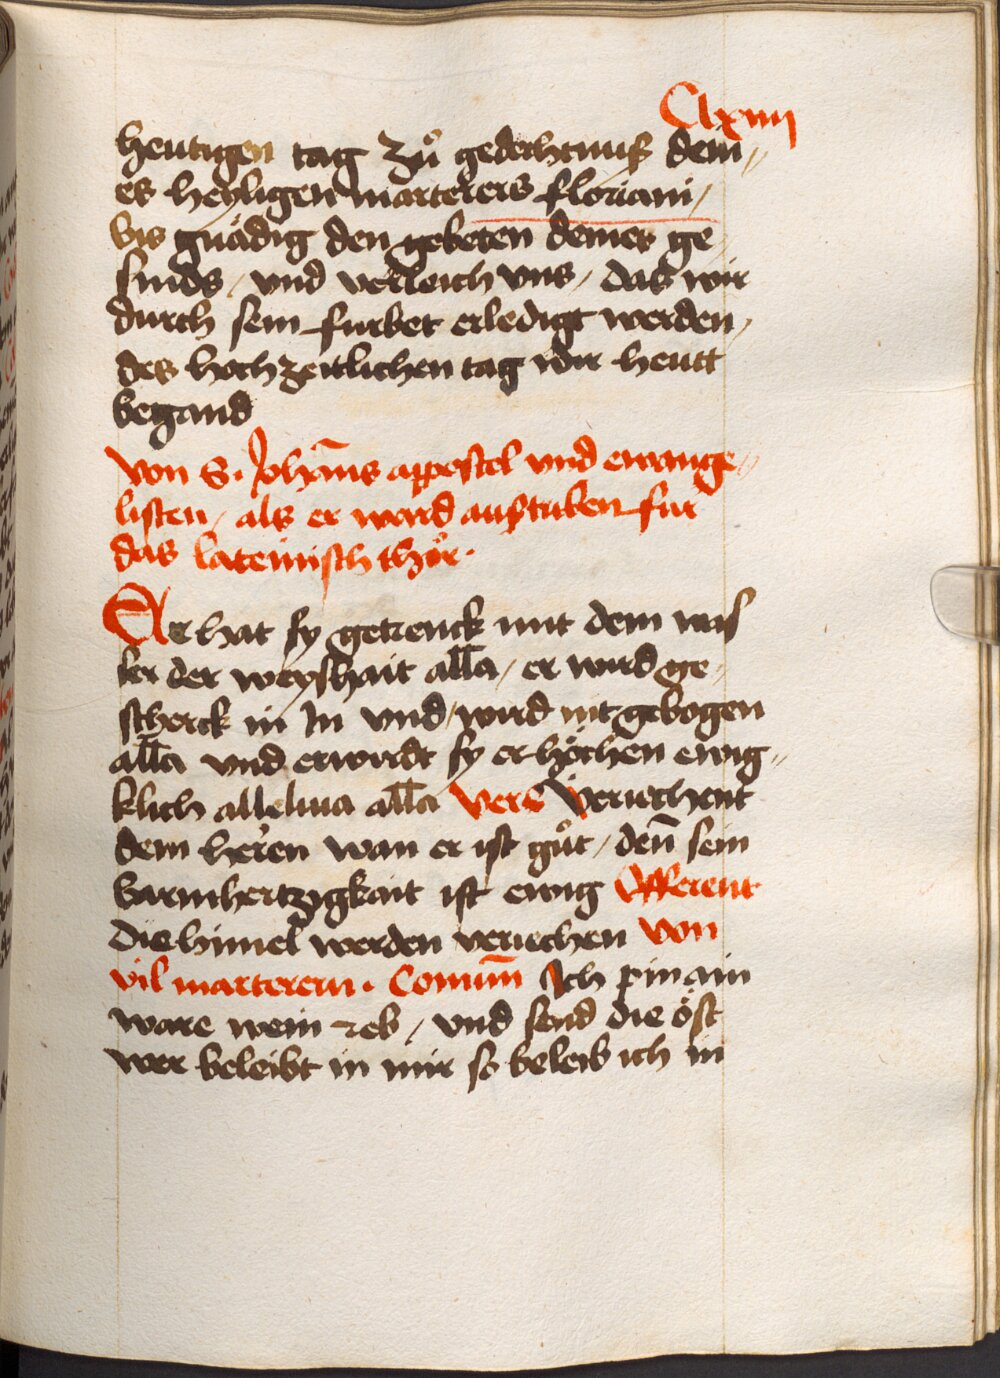 Clxiiii
heutigen tag zů gedechtnuß dein⸗
es heyligen marterers floriani /
bis gnädig den gebeten deines ge
sinds / und verleich uns / das wir
durch sein furbet erledigt werden /
des hochzeitlichen tag wir heutt
begand
Von S. Johan̄s appostel und ewange⸗
listen / als er ward austriben fur
das lateinisch thor.
Er hat sy getrenck mit dem was
ser der weyshait all̄a / er wird ge⸗
sterck in In und / wird nit gebogen
all̄a und er wirdt sy erhöchen ewig⸗
klich alleluia all̄a Vers Veriechent
dem herren wan er ist gůt / den̄ sein
barmhertzigkait ist ewig Offerent
die himel werden veriechen Von
vil marterern. Comun̄ Ich pin ain
ware wein reb / und send die öst
wer beleibt in mir so beleib ich in